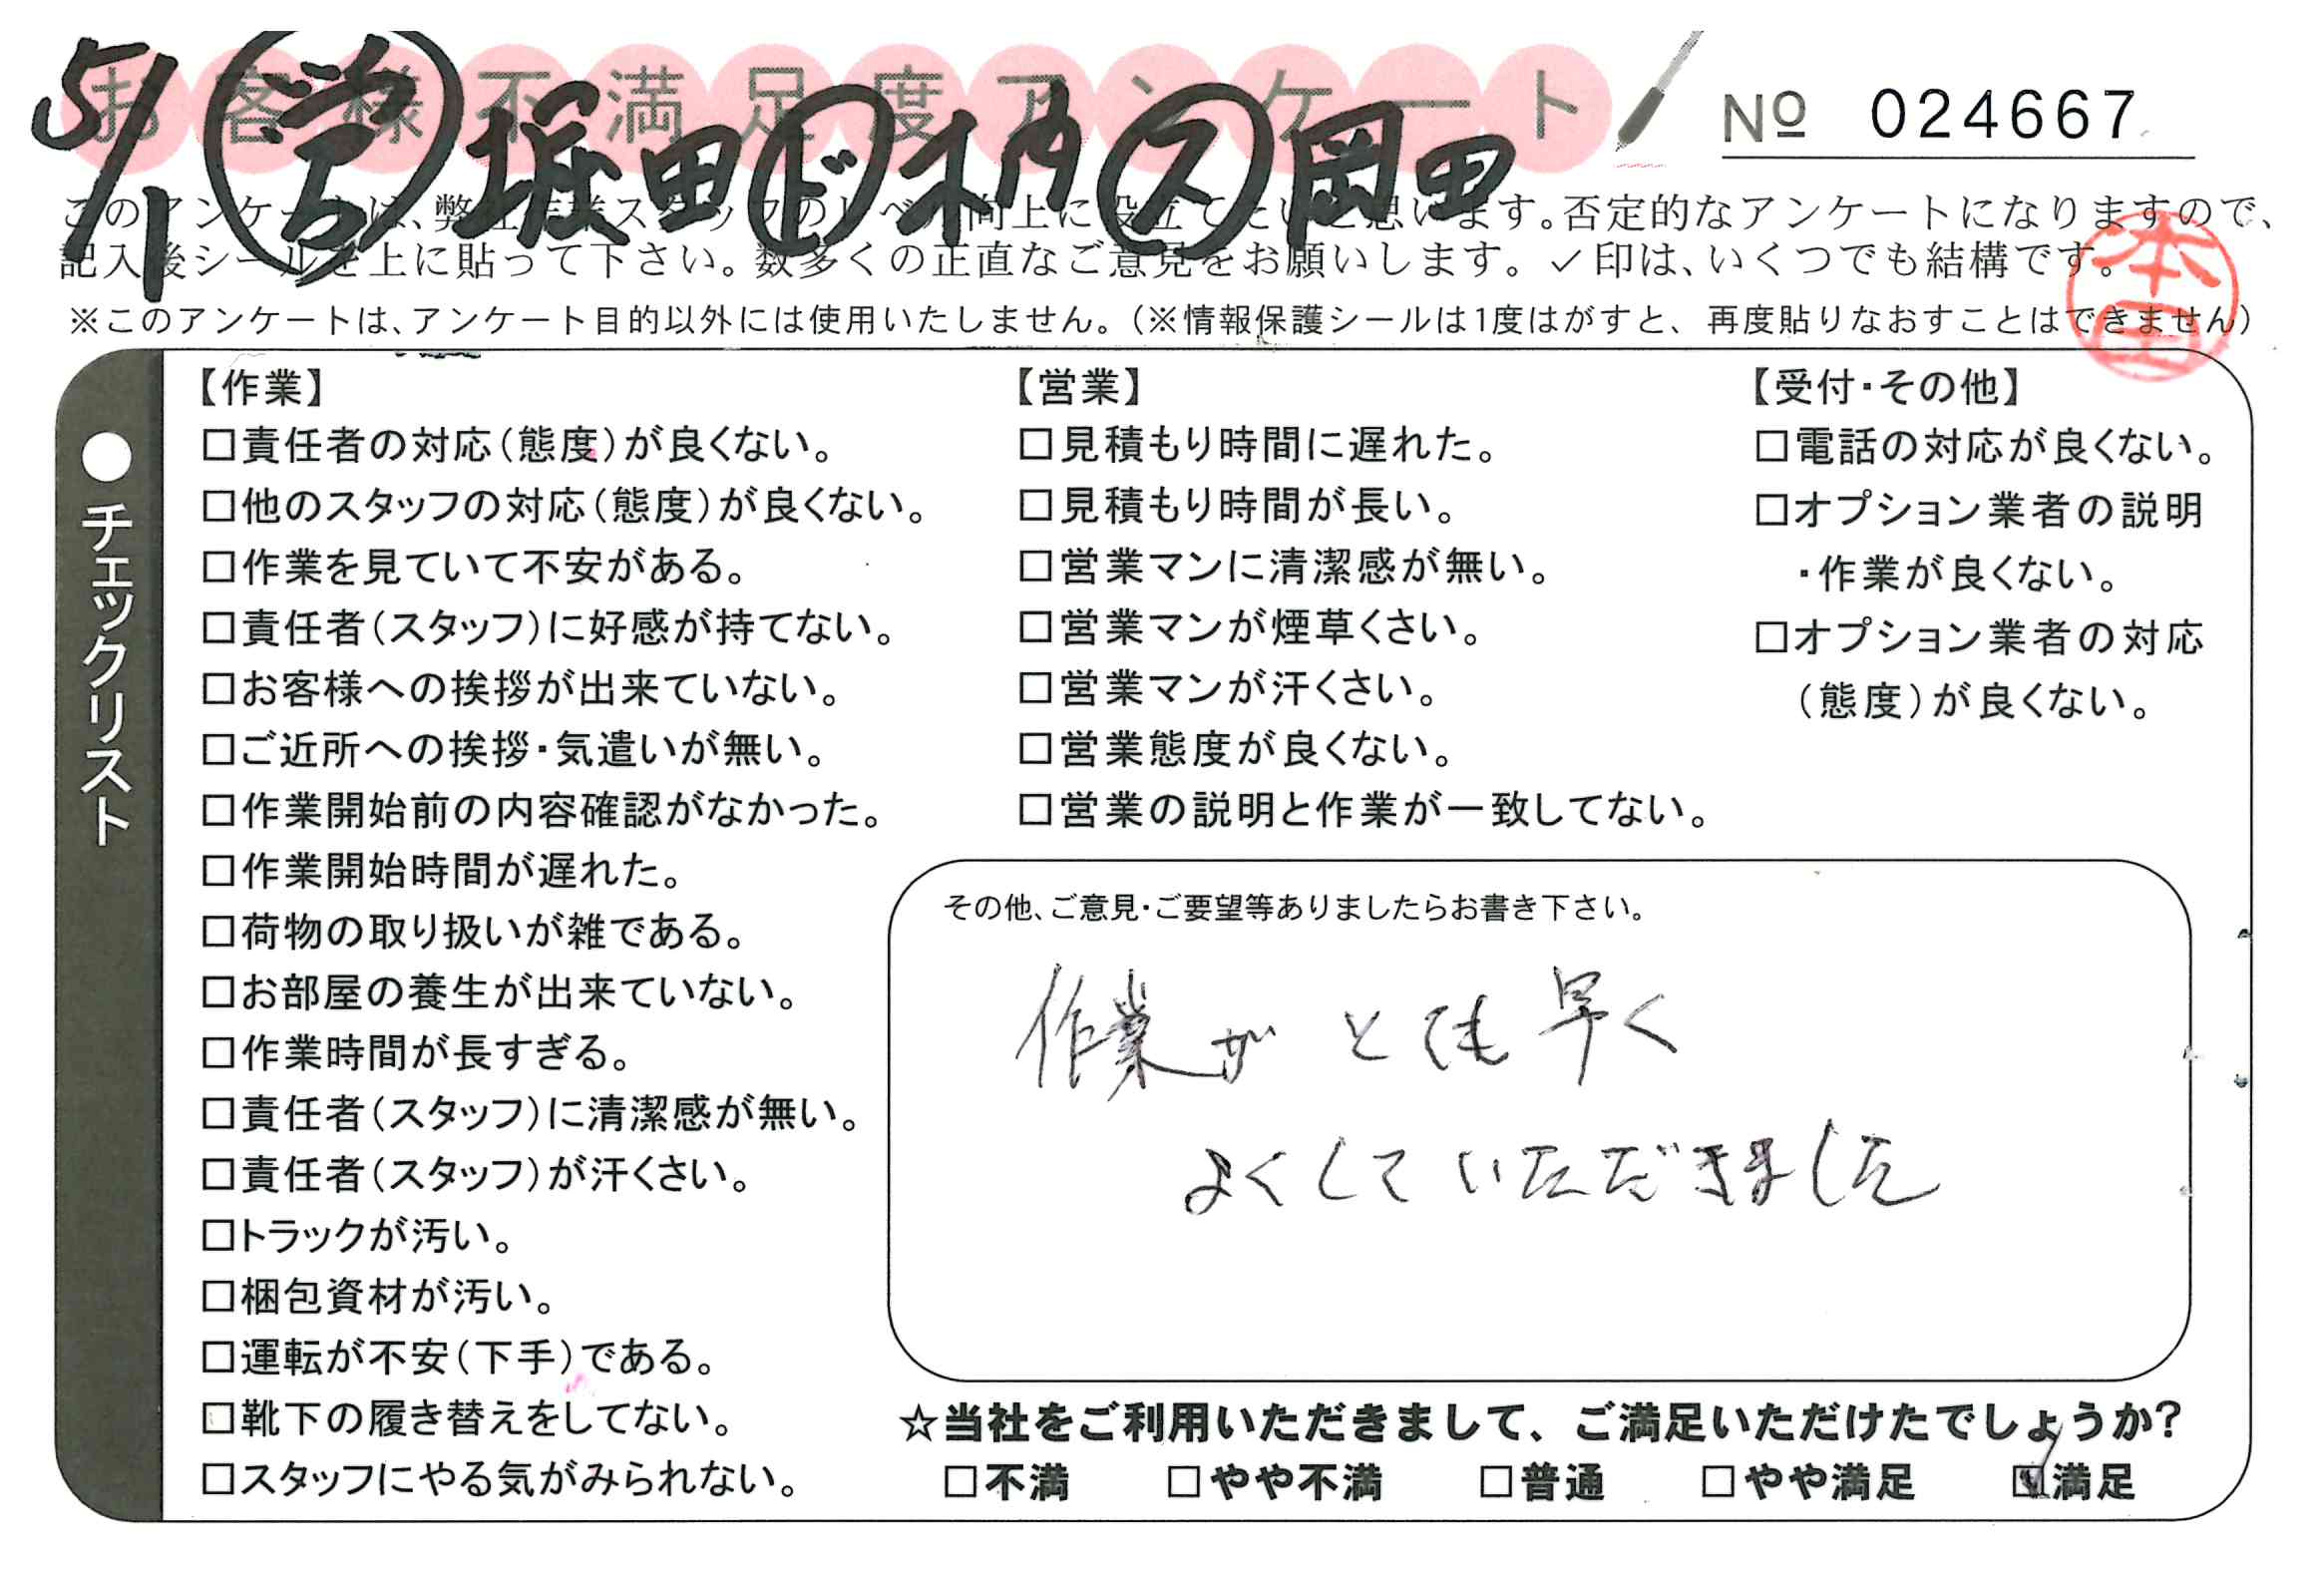 お客様不満足度アンケート
№ 024667
5/1 営 堀田 ド 柄 ス 岡田
このアンケートは、弊社作業スタッフのレベル向上に役立てたいと思います。否定的なアンケートになりますので、
記入後シールを上に貼って下さい。数多くの正直なご意見をお願いします。✓印は、いくつでも結構です。
※このアンケートは、アンケート目的以外には使用いたしません。(※情報保護シールは1度はがすと、再度貼りなおすことはできません)
本田
●チェックリスト
【作業】
□責任者の対応(態度)が良くない。
□他のスタッフの対応(態度)が良くない。
□作業を見ていて不安がある。
□責任者(スタッフ)に好感が持てない。
□お客様への挨拶が出来ていない。
□ご近所への挨拶・気遣いが無い。
□作業開始前の内容確認がなかった。
□作業開始時間が遅れた。
□荷物の取り扱いが雑である。
□お部屋の養生が出来ていない。
□作業時間が長すぎる。
□責任者(スタッフ)に清潔感が無い。
□責任者(スタッフ)が汗くさい。
□トラックが汚い。
□梱包資材が汚い。
□運転が不安(下手)である。
□靴下の履き替えをしてない。
□スタッフにやる気がみられない。
【営業】
□見積もり時間に遅れた。
□見積もり時間が長い。
□営業マンに清潔感が無い。
□営業マンが煙草くさい。
□営業マンが汗くさい。
□営業態度が良くない。
□営業の説明と作業が一致してない。
【受付・その他】
□電話の対応が良くない。
□オプション業者の説明
・作業が良くない。
□オプション業者の対応
(態度)が良くない。
その他、ご意見・ご要望等ありましたらお書き下さい。
作業がとても早く
よくしていただきました
☆当社をご利用いただきまして、ご満足いただけたでしょうか?
□不満 □やや不満 □普通 □やや満足 ☑満足